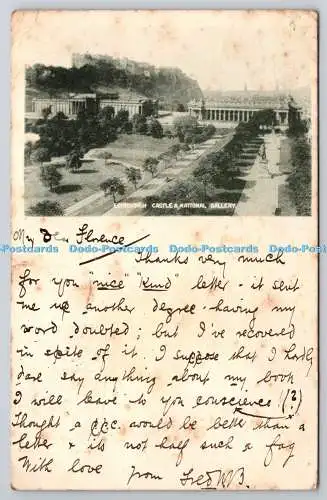 EDINBURGH CASTLE & NATIONAL GALLERY
My Dear Florence
Thanks very much
for you "nice "kind" letter - it sent
me up another degree - having my
word doubted; but I've recovered
in spite of it. I suppose that I hardly
dare say anything about my book
I will leave to you conscieves (!?)
Thought a p.p.c. would be better than a
letter & its not half such a fag
With love from Fred W B.
Postcards-UK.com Postcards-UK.com Postcards-UK.com Postcards-UK.com